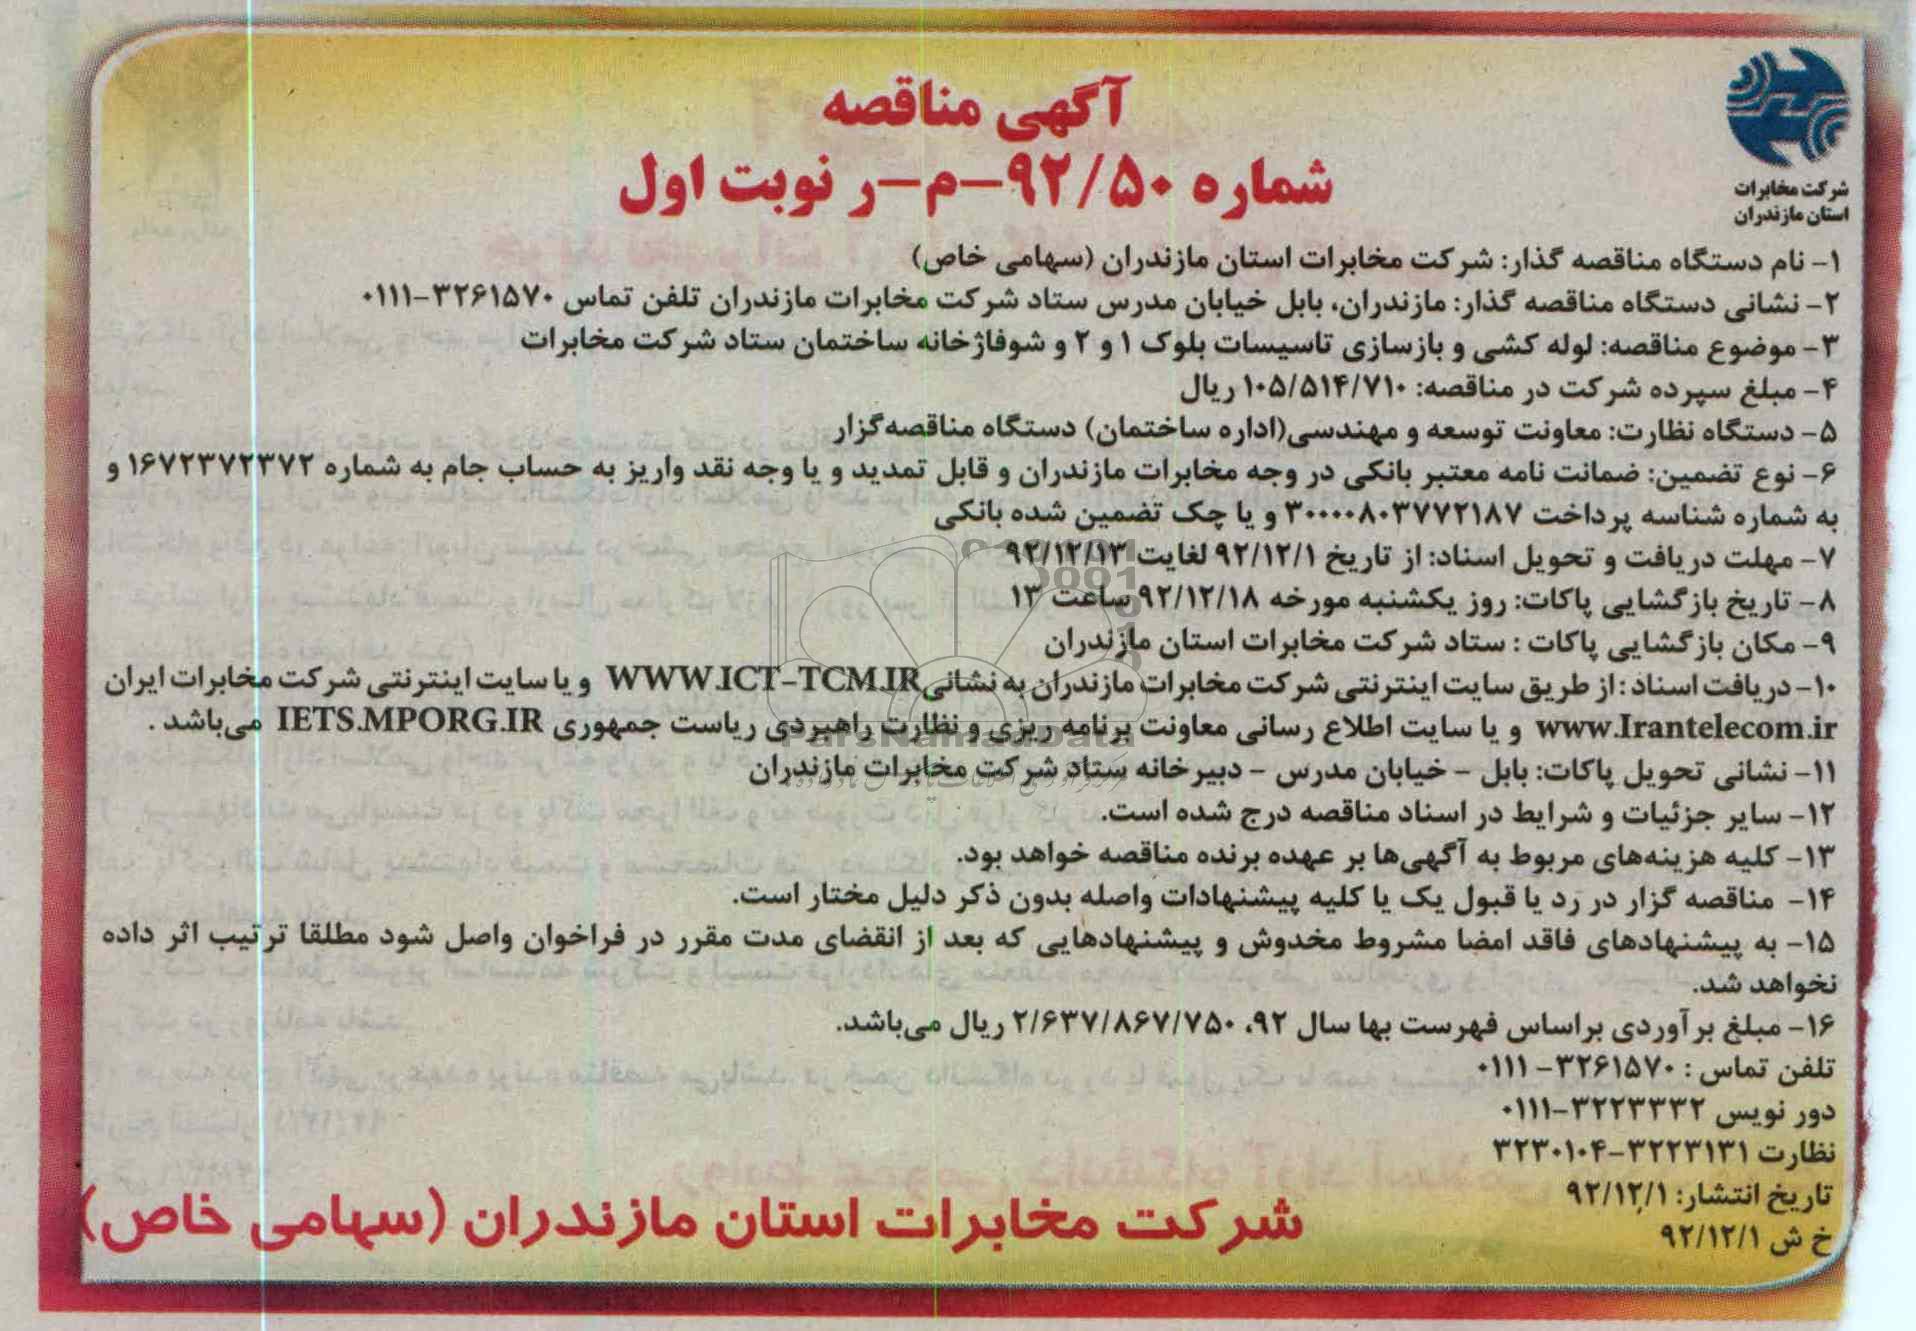 شرکت مخابرات
استان مازندران
آگهی مناقصه
شماره ۹۲/۵۰-م-ر نوبت اول
۱- نام دستگاه مناقصه گذار: شرکت مخابرات استان مازندران (سهامی خاص)
۲- نشانی دستگاه مناقصه گذار: مازندران، بابل خیابان مدرس ستاد شرکت مخابرات مازندران تلفن تماس ۳۲۶۱۵۷۰-۰۱۱۱
۳- موضوع مناقصه: لوله کشی و بازسازی تاسیسات بلوک ۱ و ۲ و شوفاژخانه ساختمان ستاد شرکت مخابرات
۴- مبلغ سپرده شرکت در مناقصه: ۱۰۵/۵۱۴/۷۱۰ ریال
۵- دستگاه نظارت: معاونت توسعه و مهندسی(اداره ساختمان) دستگاه مناقصه‌گزار
۶- نوع تضمین: ضمانت نامه معتبر بانکی در وجه مخابرات مازندران و قابل تمدید و یا وجه نقد واریز به حساب جام به شماره ۱۶۷۲۳۷۲۳۷۲ و
به شماره شناسه پرداخت ۳۰۰۰۰۰۸۰۳۷۷۲۱۸۷ و یا چک تضمین شده بانکی
۷- مهلت دریافت و تحویل اسناد: از تاریخ ۹۲/۱۲/۱ لغایت ۹۲/۱۲/۱۳
۸- تاریخ بازگشایی پاکات: روز یکشنبه مورخه ۹۲/۱۲/۱۸ ساعت ۱۳
۹- مکان بازگشایی پاکات : ستاد شرکت مخابرات استان مازندران
۱۰- دریافت اسناد : از طریق سایت اینترنتی شرکت مخابرات مازندران به نشانی WWW.ICT-TCM.IR و یا سایت اینترنتی شرکت مخابرات ایران
www.Irantelecom.ir و یا سایت اطلاع رسانی معاونت برنامه ریزی و نظارت راهبردی ریاست جمهوری IETS.MPORG.IR می‌باشد .
ParsNamadData
۱۱- نشانی تحویل پاکات: بابل - خیابان مدرس - دبیرخانه ستاد شرکت مخابرات مازندران
۱۲- سایر جزئیات و شرایط در اسناد مناقصه درج شده است.
۱۳- کلیه هزینه‌های مربوط به آگهی‌ها بر عهده برنده مناقصه خواهد بود.
۱۴- مناقصه گزار در رد یا قبول یک یا کلیه پیشنهادات واصله بدون ذکر دلیل مختار است.
۱۵- به پیشنهادهای فاقد امضا مشروط مخدوش و پیشنهادهایی که بعد از انقضای مدت مقرر در فراخوان واصل شود مطلقا ترتیب اثر داده
نخواهد شد.
۱۶- مبلغ برآوردی براساس فهرست بها سال ۹۲، ۲/۶۳۷/۸۶۷/۷۵۰ ریال می‌باشد.
تلفن تماس : ۳۲۶۱۵۷۰- ۰۱۱۱
دور نویس ۳۲۲۳۳۳۲-۰۱۱۱
نظارت ۳۲۲۳۱۳۱-۳۲۳۰۱۰۴
تاریخ انتشار: ۹۲/۱۲/۱
خ ش ۹۲/۱۲/۱
شرکت مخابرات استان مازندران (سهامی خاص)